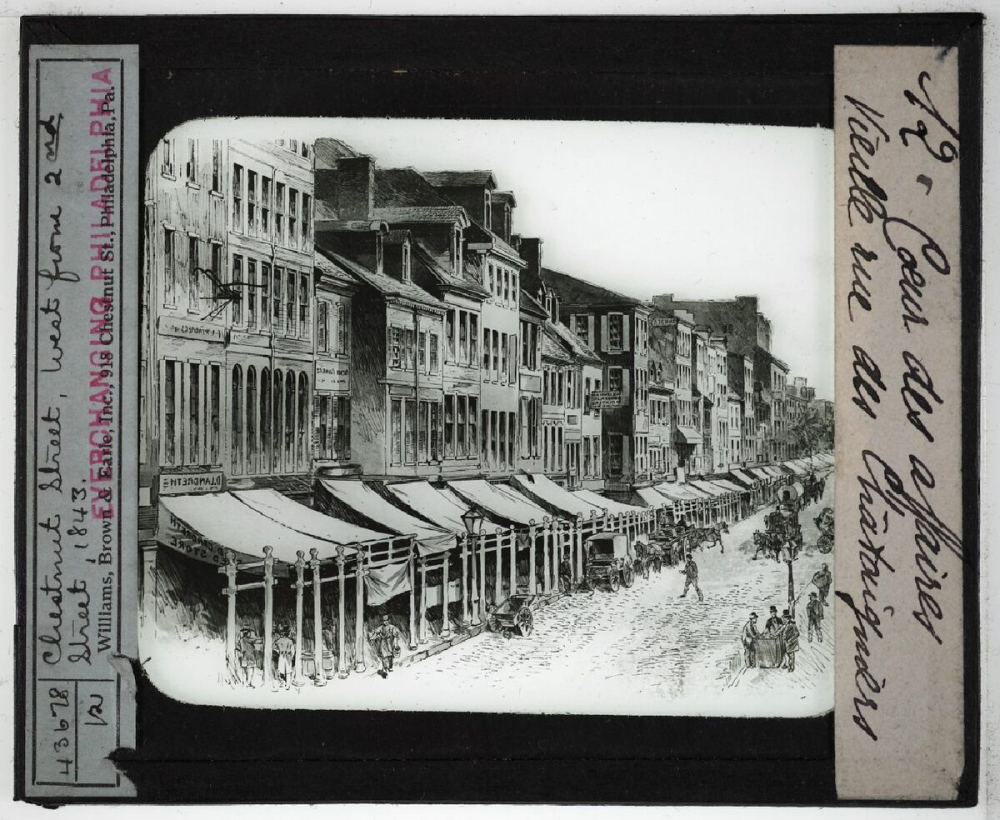 43678
12
Chestnut Street, West from 2nd
Street, 1843.
EVERCHANGING PHILADELPHIA
Williams, Brown & Earle, Inc., 918 Chestnut St., Philadelphia, Pa.
D. LANDRETH
STORE
12 - Coeur des affaires
Vieille rue des Châtaigniers